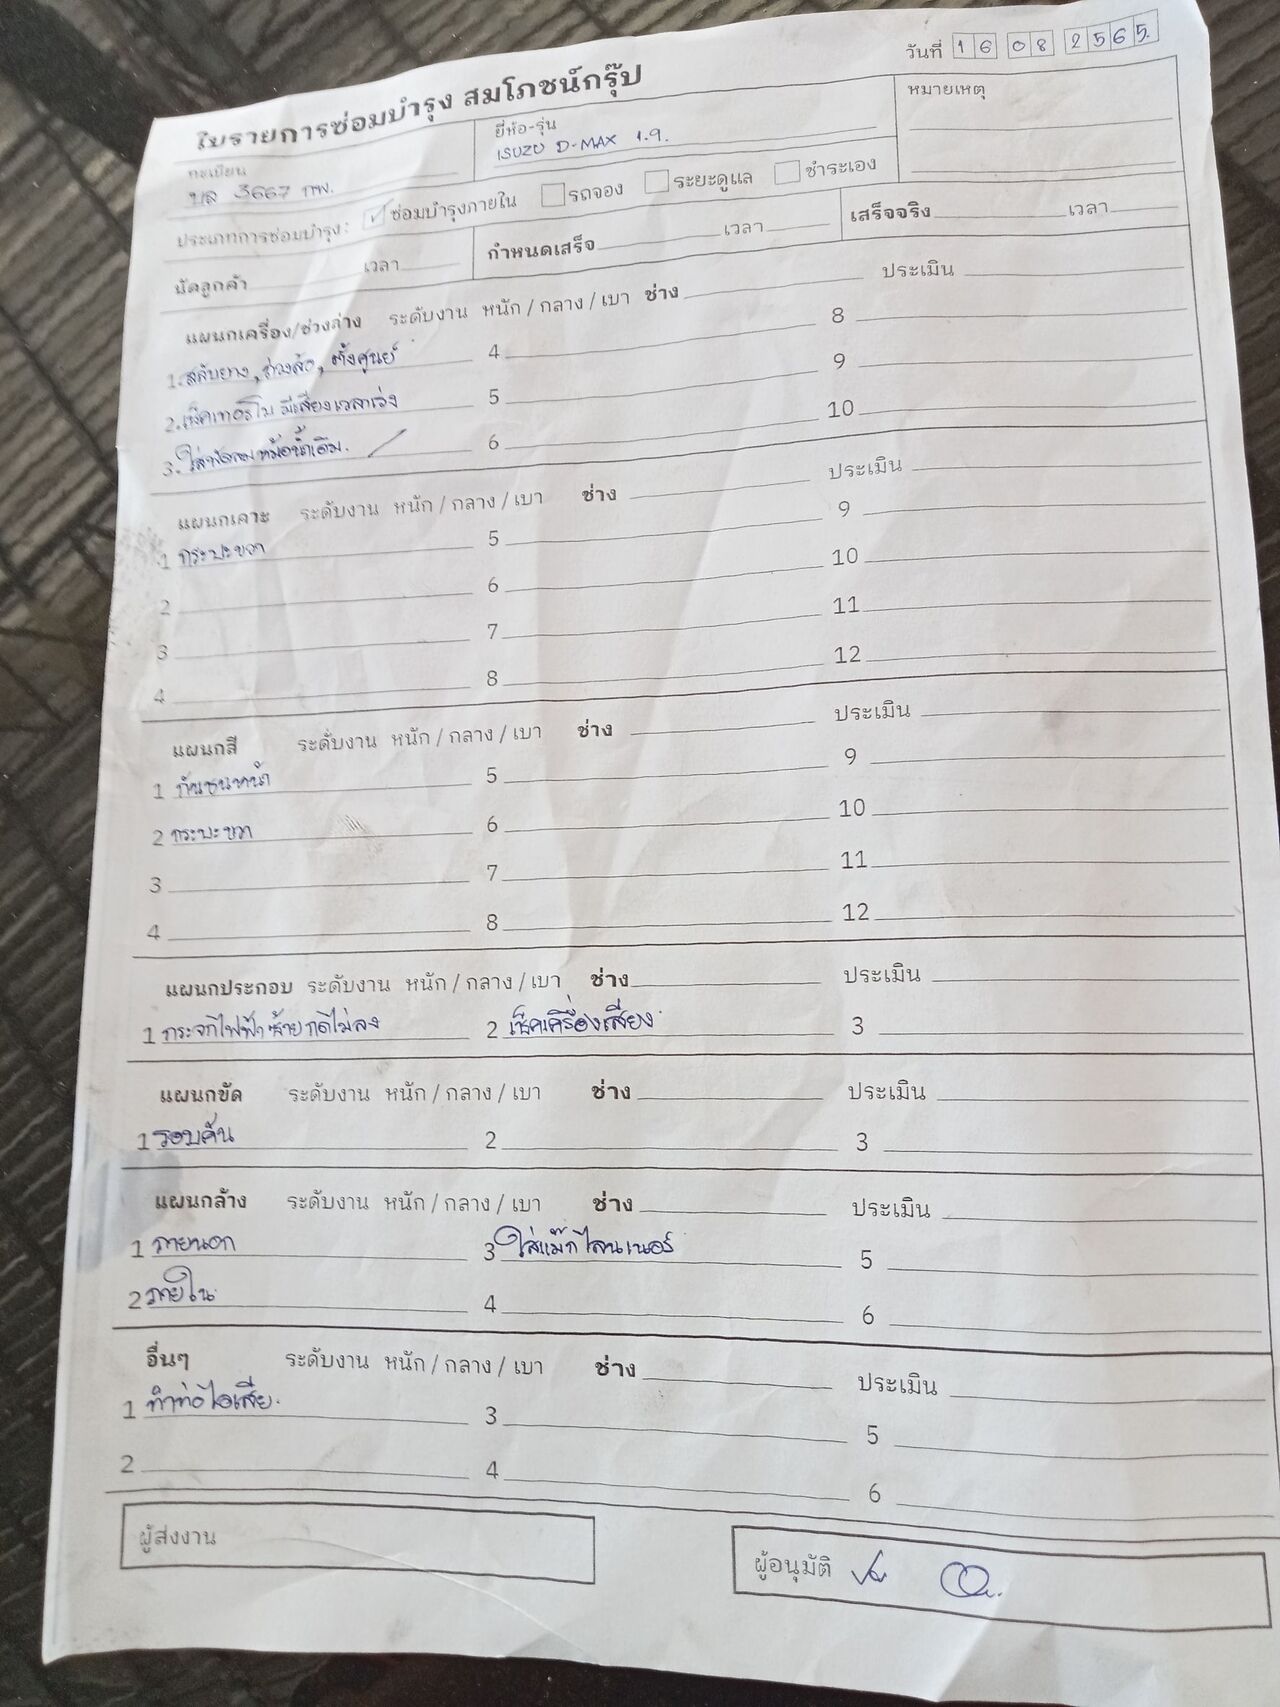 วันที่ 16 08 2565
ใบรายการซ่อมบำรุง สมโภชน์กรุ๊ป
ทะเบียน ยี่ห้อ-รุ่น หมายเหตุ
3667 กพ. ISUZU D-MAX 1.9.
ประเภทการซ่อมบำรุง: ✓ ซ่อมบำรุงภายใน รถจอง ระยะดูแล ชำระเอง
นัดลูกค้า เวลา กำหนดเสร็จ เวลา เสร็จจริง เวลา
แผนกเครื่อง/ช่วงล่าง ระดับงาน หนัก / กลาง / เบา ช่าง ประเมิน
1. สลับยาง, ถ่วงล้อ, ตั้งศูนย์ 4 8
2. เช็คเทอร์โบ มีเสียงเวลาเร่ง 5 9
3. ใส่พัดลมหม้อน้ำเดิม. 6 10
แผนกเคาะ ระดับงาน หนัก / กลาง / เบา ช่าง ประเมิน
1 กระบะขวา 5 9
2 6 10
3 7 11
4 8 12
แผนกสี ระดับงาน หนัก / กลาง / เบา ช่าง ประเมิน
1 กันชนหน้า 5 9
2 กระบะขวา 6 10
3 7 11
4 8 12
แผนกประกอบ ระดับงาน หนัก / กลาง / เบา ช่าง ประเมิน
1 กระจกไฟฟ้าซ้ายกดไม่ลง 2 เช็คเครื่องเสียง 3
แผนกขัด ระดับงาน หนัก / กลาง / เบา ช่าง ประเมิน
1 รอบคัน 2 3
แผนกล้าง ระดับงาน หนัก / กลาง / เบา ช่าง ประเมิน
1 ภายนอก 3 ใส่แม๊กไลนเนอร์ 5
2 ภายใน 4 6
อื่นๆ ระดับงาน หนัก / กลาง / เบา ช่าง ประเมิน
1 ทำท่อไอเสีย. 3 5
2 4 6
ผู้ส่งงาน ผู้อนุมัติ